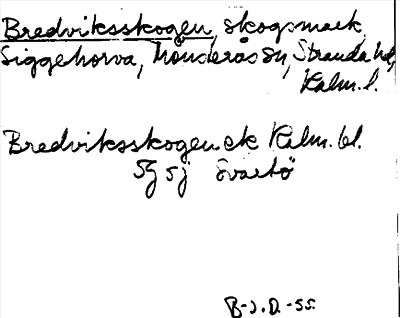 Bredviksskogen, skogsmark,
Siggehorva, Mönsterås sn, Stranda hd,
Kalm. l.
Bredviksskogen ek Kalm. bl.
5G 5j Svartö
B-J. D. -55.